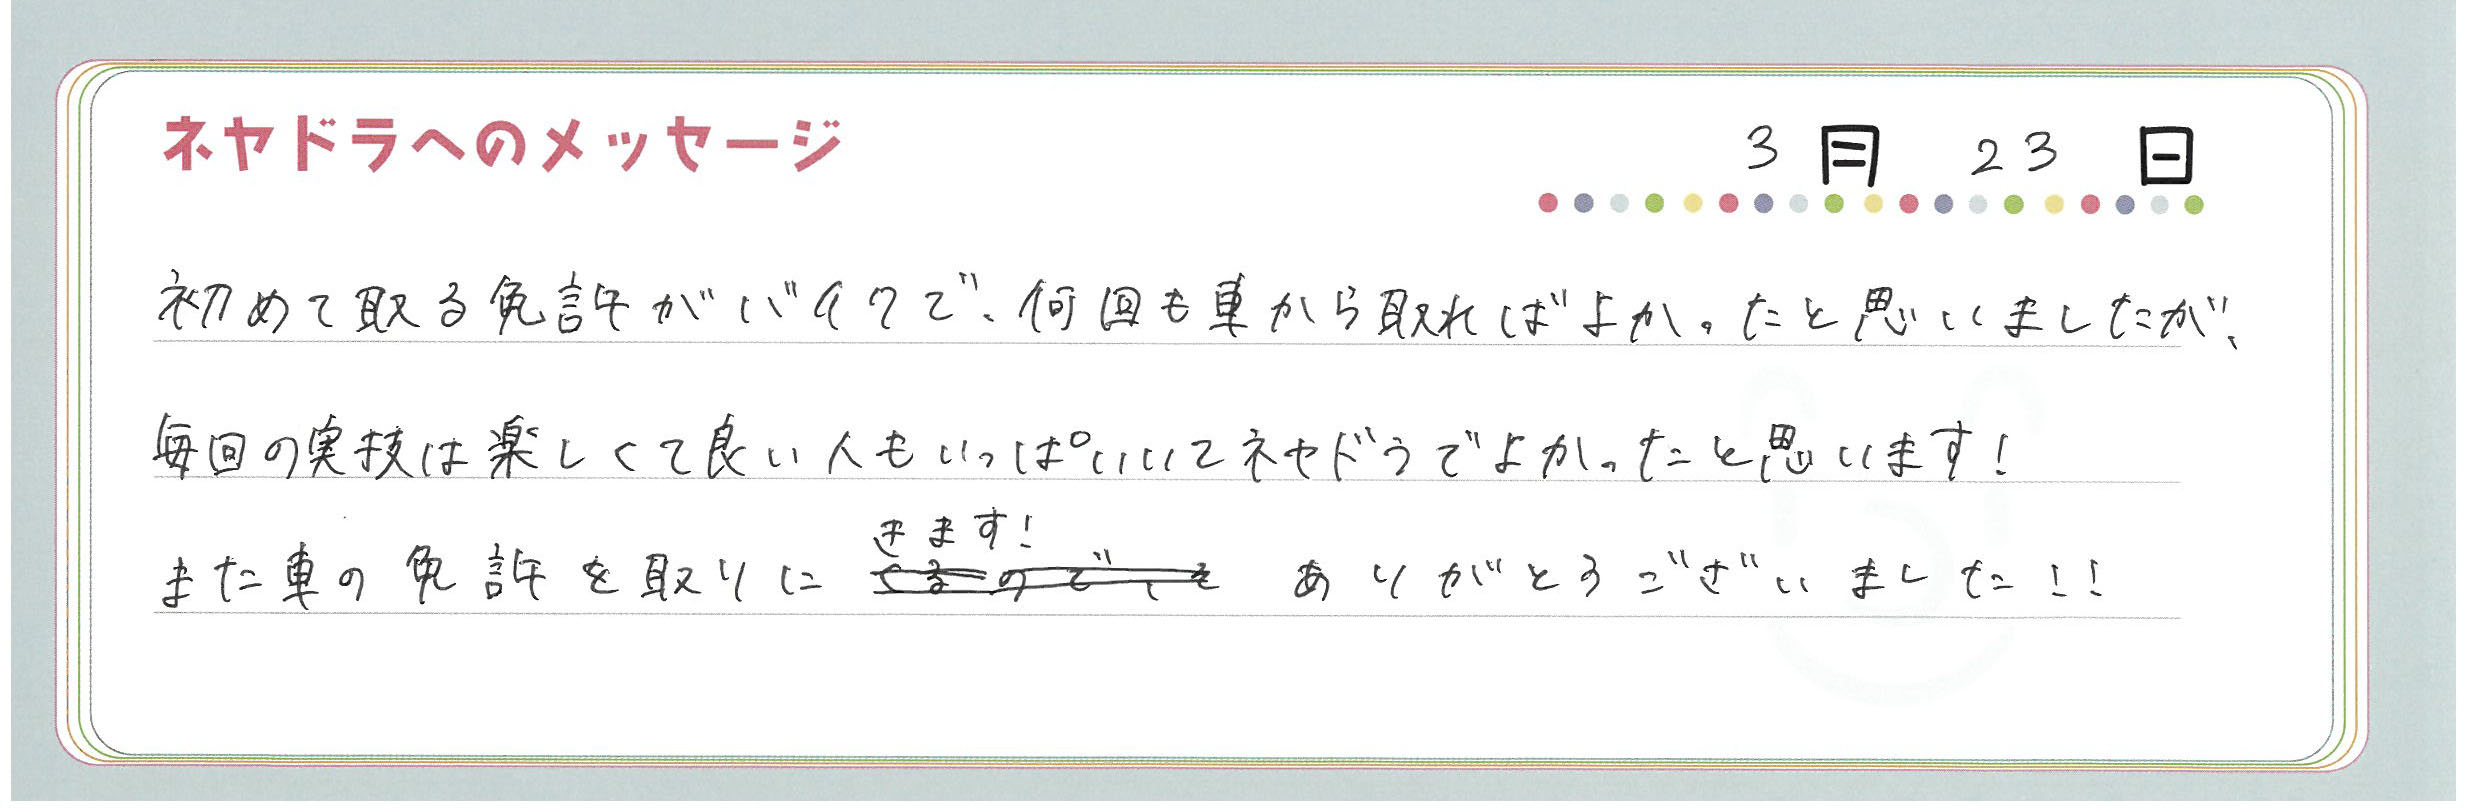 ネヤドラへのメッセージ
3月 23日
初めて取る免許がバイクで、何回も車から取ればよかったと思いましたが、
毎回の実技は楽しくて良い人もいっぱいいてネヤドラでよかったと思います!
きます!
また車の免許を取りに ありがとうございました!!